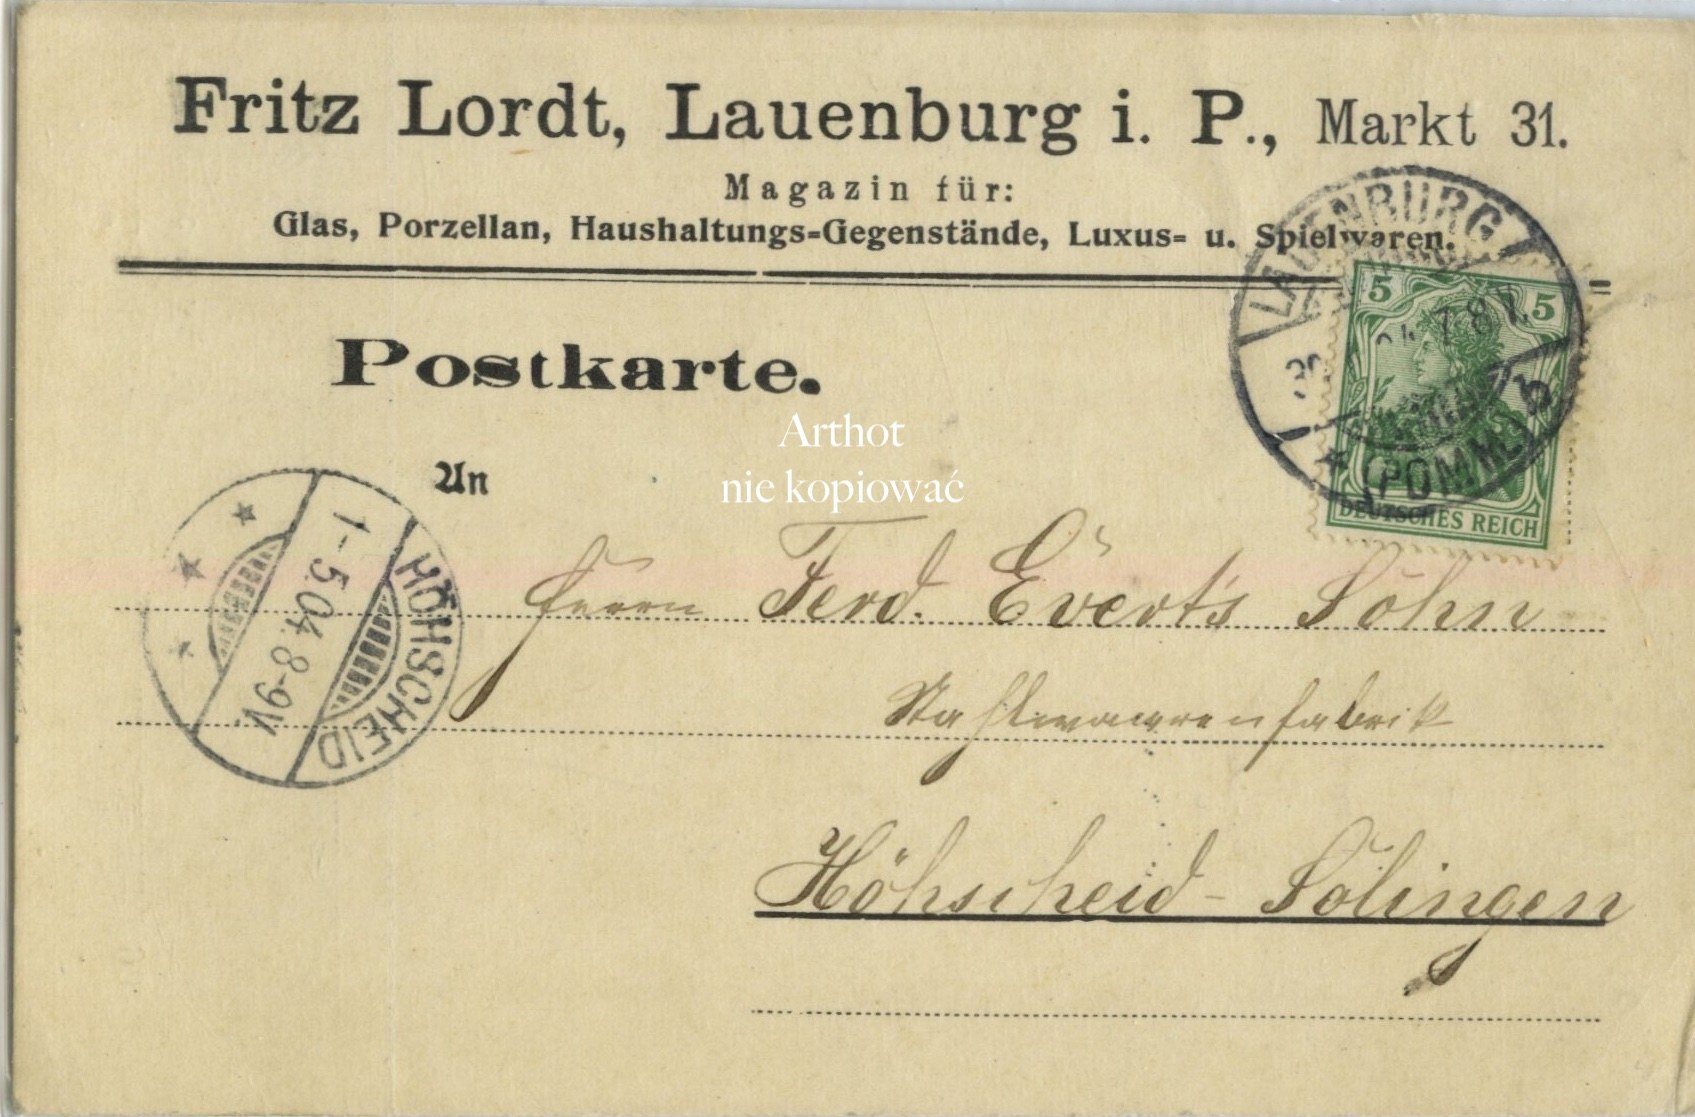 Fritz Lordt, Lauenburg i. P., Markt 31.
Magazin für:
Glas, Porzellan, Haushaltungs=Gegenstände, Luxus= u. Spielwaren.
LAUENBURG
(POMM.)
5 5
DEUTSCHES REICH
Postkarte.
Arthot
nie kopiować
An
HÖHSCHEID
1-5.04.8-9V.
Herrn Ferd. Everts Söhn
Stahlwaarenfabrik
Höhscheid - Solingen